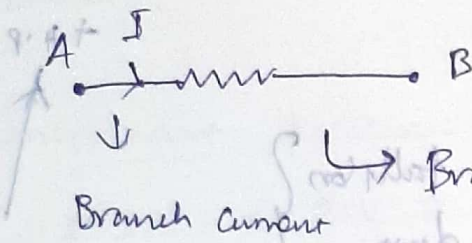 I
A
B
Br
Branch current